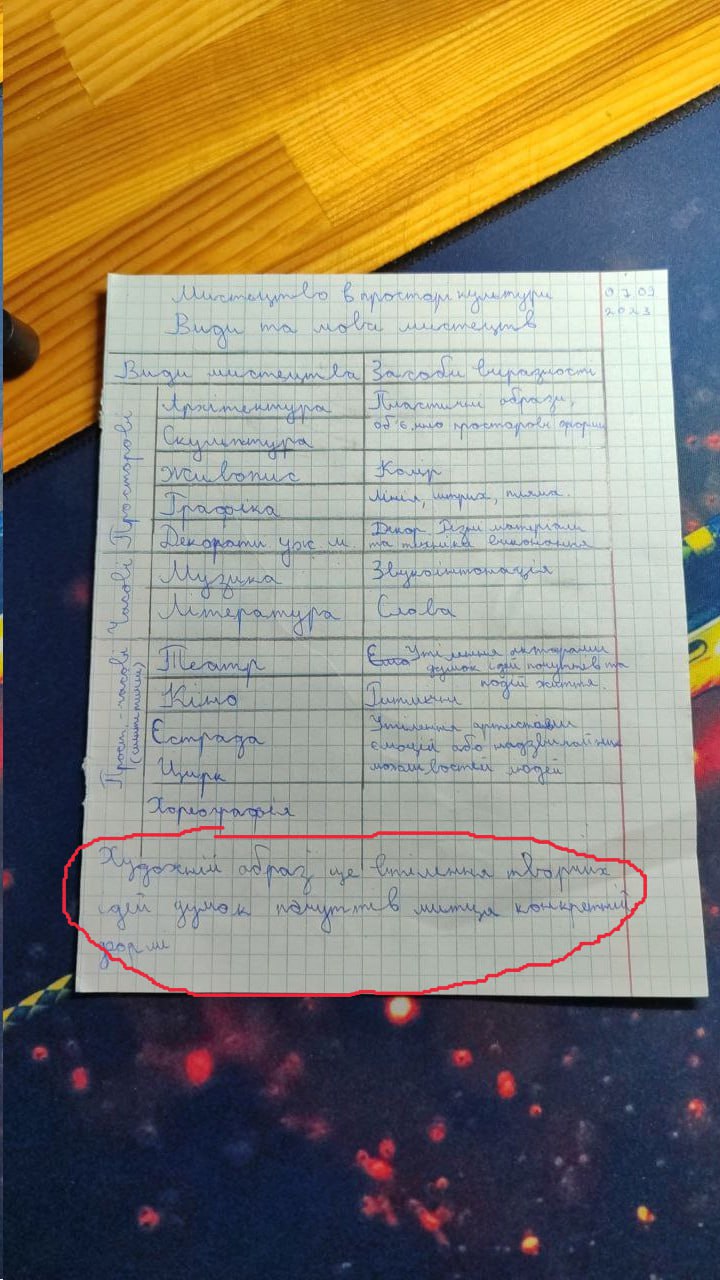 Мистецтво в простарі культури 07 09
Види та мова мистецтв 2023
Види мистецтва Засоби виразності
Просторові
Архітектура Пластични образи,
Скульптура об'ємно просторові форми
Живопис Колір
Графіка Лінія, штрих, пляма.
Декорати уж м. Декор Різни матеріали
та техніка виконання
Часові
Музика Звукоінтонація
Література Слова
Прост. - часові
(синтетичні)
Театр Утілення акторами
думок ідей почуттєв та
подій життя.
Кіно Ритмични
Єстрада Утілення артистами
ємоцій або надзвичайних
Цирк можливостей людей
Хореографія
Художній образ це втілення творчих
ідей думок почуттєв митця конкретній
форми